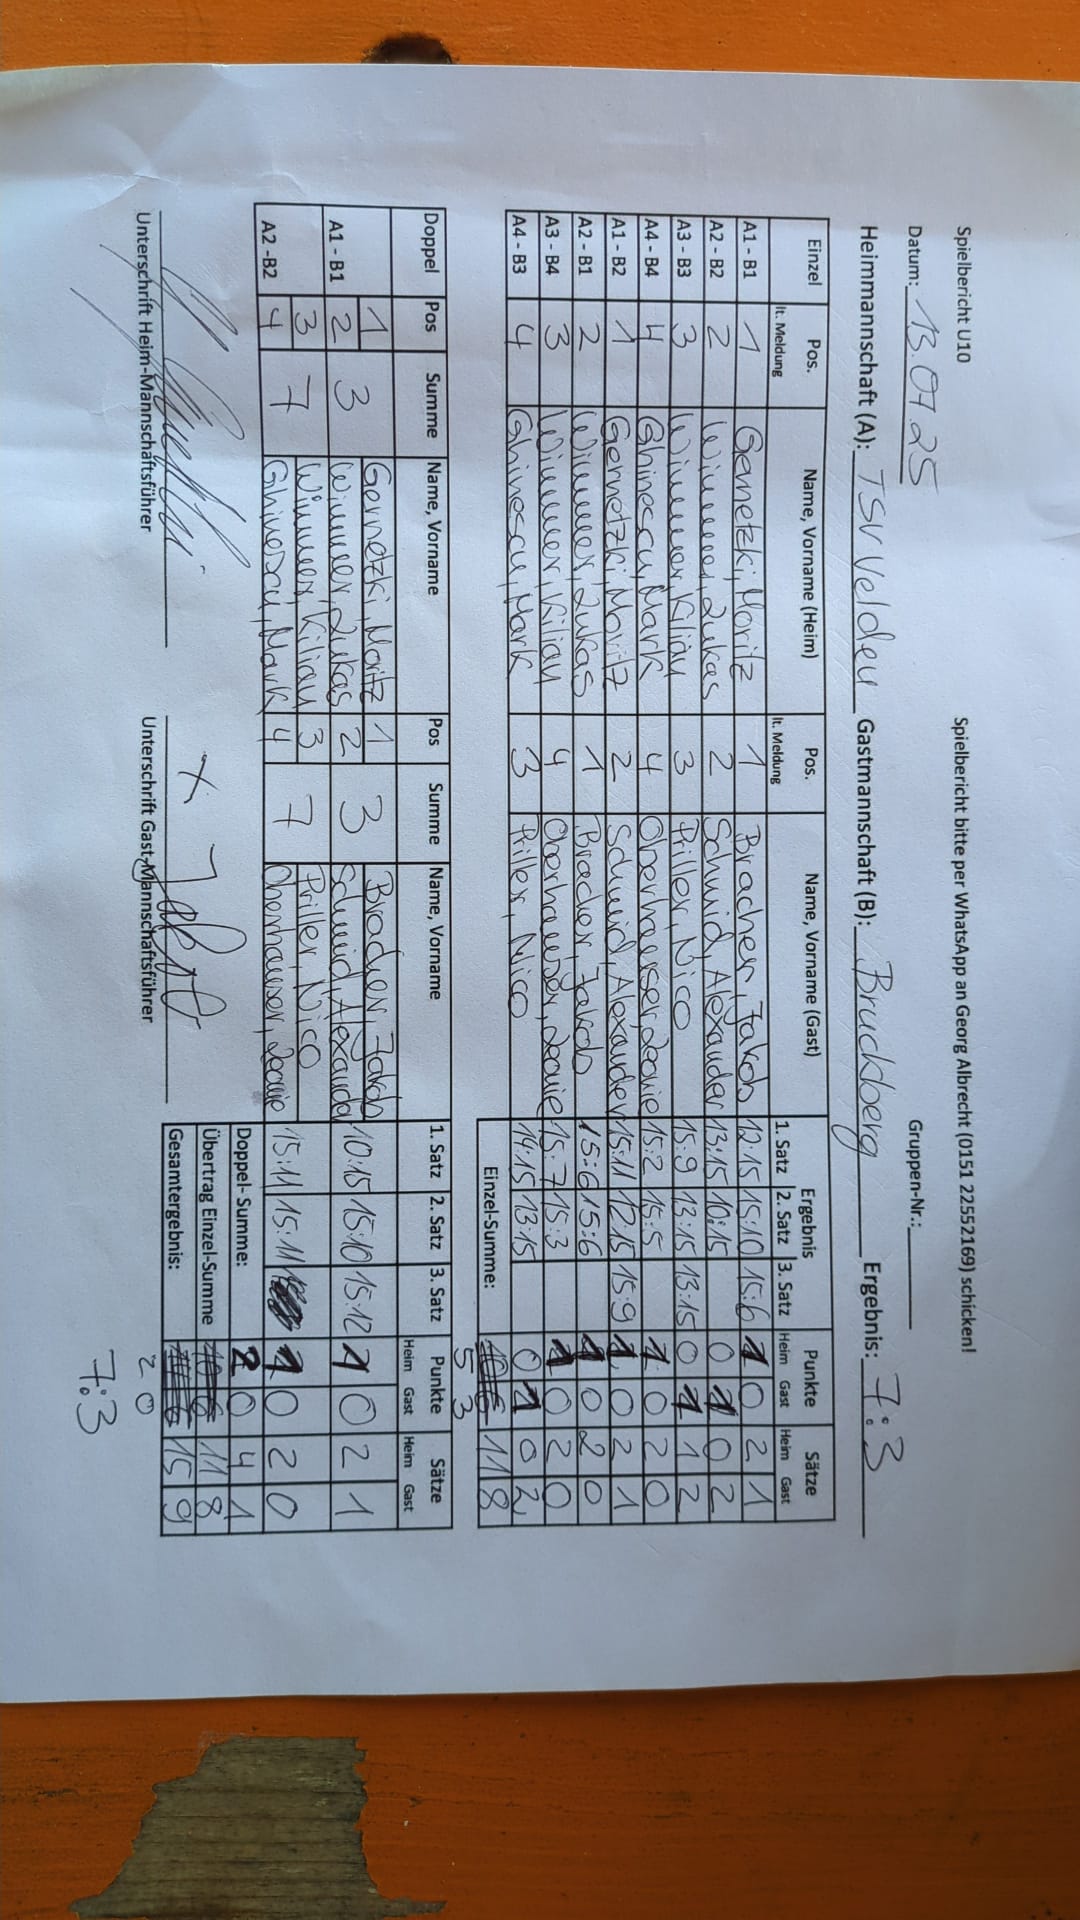 Spielbericht U10 Spielbericht bitte per WhatsApp an Georg Albrecht (0151 22552169) schicken!
Datum: 13.07.25 Gruppen-Nr.:
Heimmannschaft (A): TSV Velden Gastmannschaft (B): Bruckberg Ergebnis: 7:3
Einzel Pos. lt. Meldung Name, Vorname (Heim) Pos. lt. Meldung Name, Vorname (Gast) Ergebnis Punkte Sätze
1. Satz 2. Satz 3. Satz Heim Gast Heim Gast
A1 - B1 1 Gernetzki, Moritz 1 Bracher, Jakob 12:15 15:10 15:6 1 0 2 1
A2 - B2 2 Wimmer, Lukas 2 Schmid, Alexander 13:15 10:15 0 1 0 2
A3 - B3 3 Wimmer, Kilian 3 Priller, Nico 15:9 13:15 13:15 0 1 1 2
A4 - B4 4 Ghinescu, Mark 4 Oberhauser, Leonie 15:2 15:5 1 0 2 0
A1 - B2 1 Gernetzki, Moritz 2 Schmid, Alexander 15:11 12:15 15:9 1 0 2 1
A2 - B1 2 Wimmer, Lukas 1 Bracher, Jakob 15:6 15:6 1 0 2 0
A3 - B4 3 Wimmer, Kilian 4 Oberhauser, Leonie 15:7 15:3 1 0 2 0
A4 - B3 4 Ghinescu, Mark 3 Priller, Nico 14:15 13:15 0 1 0 2
Einzel-Summe: 11 8
5 3
Doppel Pos Summe Name, Vorname Pos Summe Name, Vorname 1. Satz 2. Satz 3. Satz Punkte Sätze
Heim Gast Heim Gast
1 Gernetzki, Moritz 1 Bracher, Jakob
A1 - B1 2 3 Wimmer, Lukas 2 3 Schmid, Alexander 10:15 15:10 15:12 1 0 2 1
3 Wimmer, Kilian 3 Priller, Nico
A2 - B2 4 7 Ghinescu, Mark 4 7 Oberhauser, Leonie 15:11 15:11 1 0 2 0
Doppel- Summe: 2 0 4 1
Übertrag Einzel-Summe 11 8
Gesamtergebnis: 15 9
2 0
7:3
Unterschrift Heim-Mannschaftsführer Unterschrift Gast-Mannschaftsführer